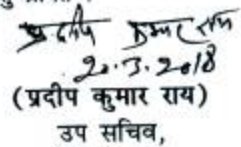 प्रदीप कुमार राय
20.3.2018
(प्रदीप कुमार राय)
उप सचिव,